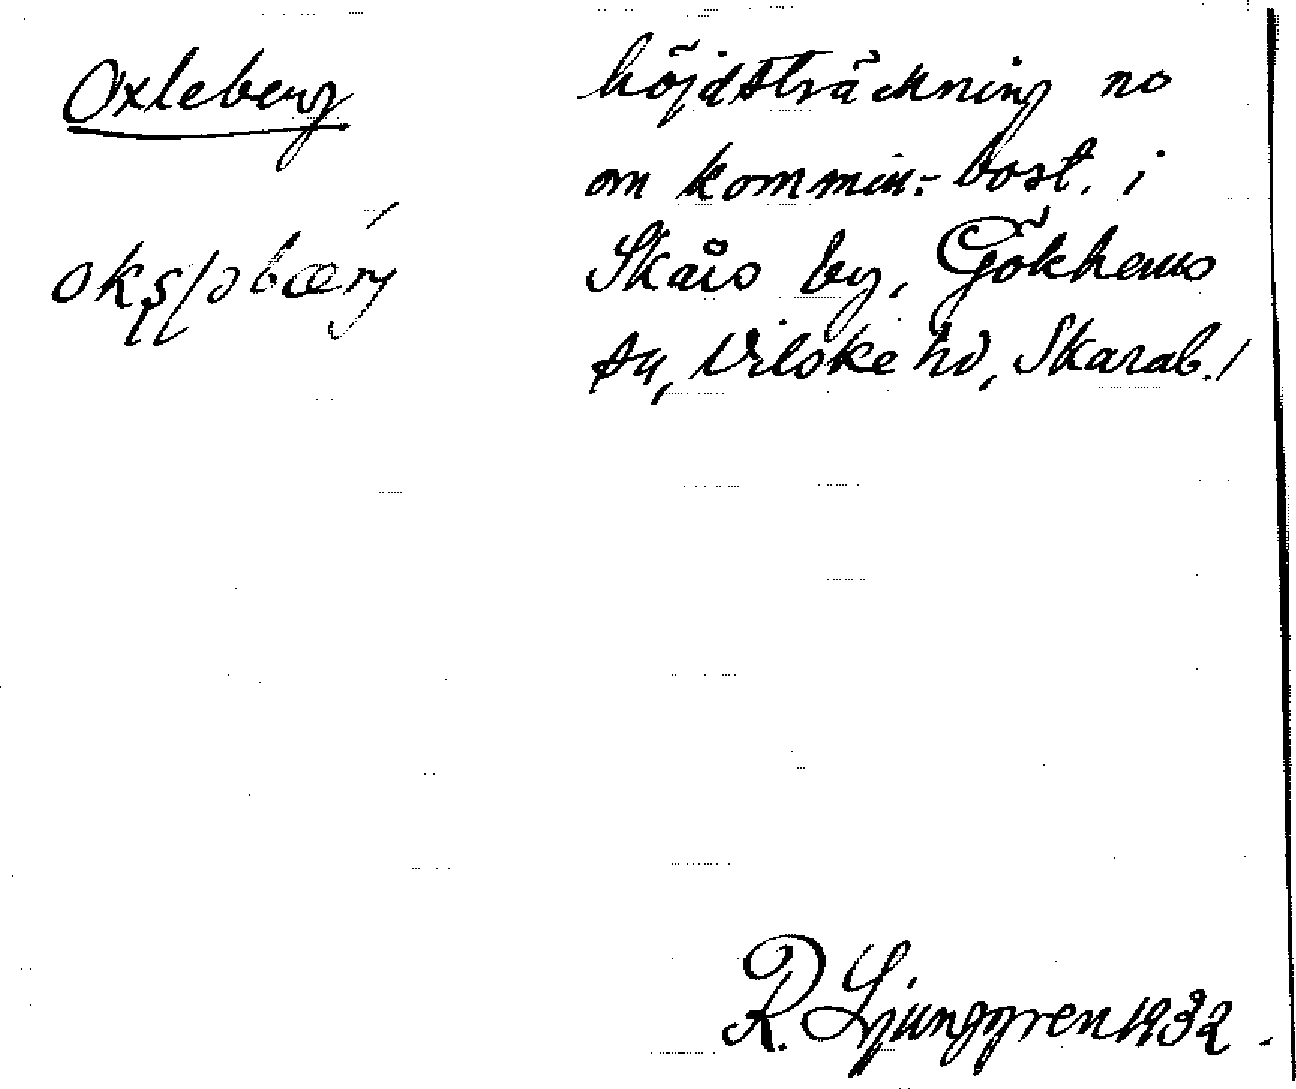 Oxleberg
höjdsträckning no
om kommin.- bost. i
Skårs by, Gökhems
sn, Vilske hd, Skarab. l
R. Ljunggren 1932.